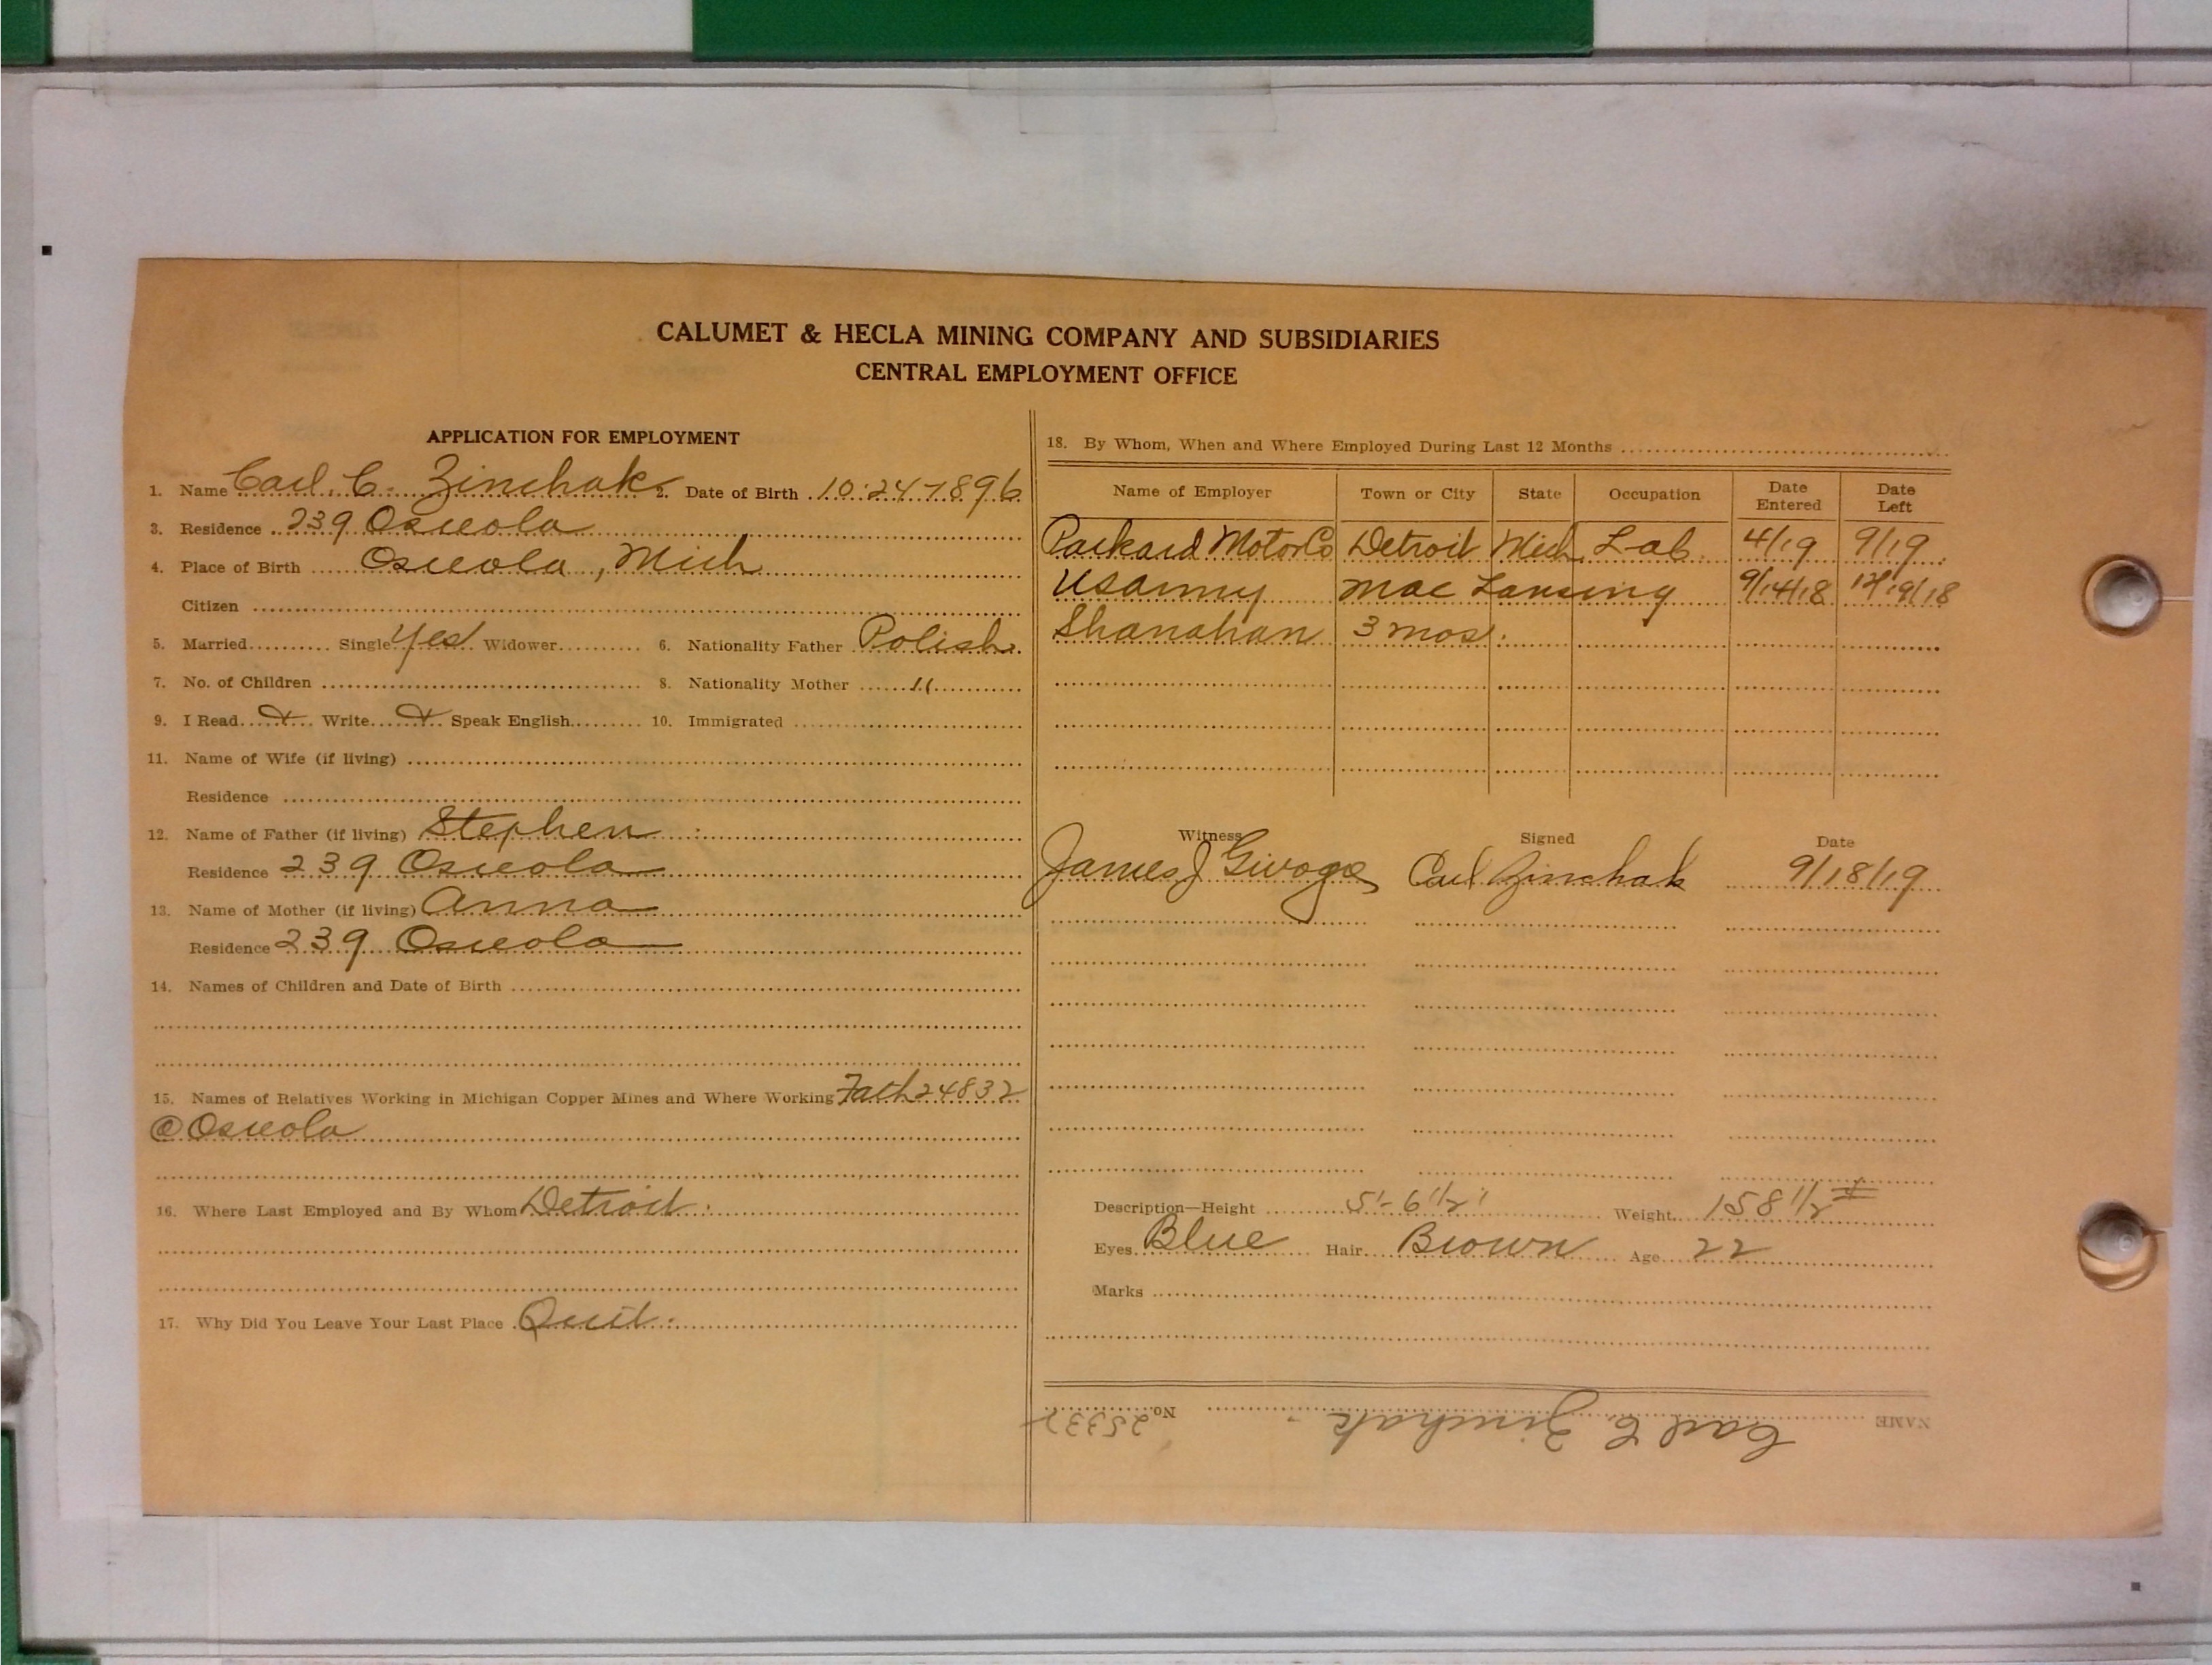 CALUMET & HECLA MINING COMPANY AND SUBSIDIARIES
CENTRAL EMPLOYMENT OFFICE
APPLICATION FOR EMPLOYMENT
1. Name Carl. C. Zinchak 2. Date of Birth 10-24-1896
3. Residence 239 Osceola
4. Place of Birth Osceola, Mich
Citizen
5. Married Single Yes Widower 6. Nationality Father Polish
7. No. of Children 8. Nationality Mother "
9. I Read X Write X Speak English 10. Immigrated
11. Name of Wife (if living)
Residence
12. Name of Father (if living) Stephen
Residence 239 Osceola
13. Name of Mother (if living) Anna
Residence 239 Osceola
14. Names of Children and Date of Birth
15. Names of Relatives Working in Michigan Copper Mines and Where Working Fath 24832
@ Osceola
16. Where Last Employed and By Whom Detroit
17. Why Did You Leave Your Last Place Quit.
18. By Whom, When and Where Employed During Last 12 Months
Name of Employer Town or City State Occupation Date Entered Date Left
Packard Motor Co Detroit Mich Lab. 4/19 9/19
US army Mac Lansing 9/14/18 12/19/18
Shanahan 3 mos.
Witness Signed Date
James J Carl Zinchak 9/18/19
Description—Height 5'-6 1/2" Weight 158 1/2 #
Eyes Blue Hair Brown Age 22
Marks
NAME Carl C Zinchak No. 25332